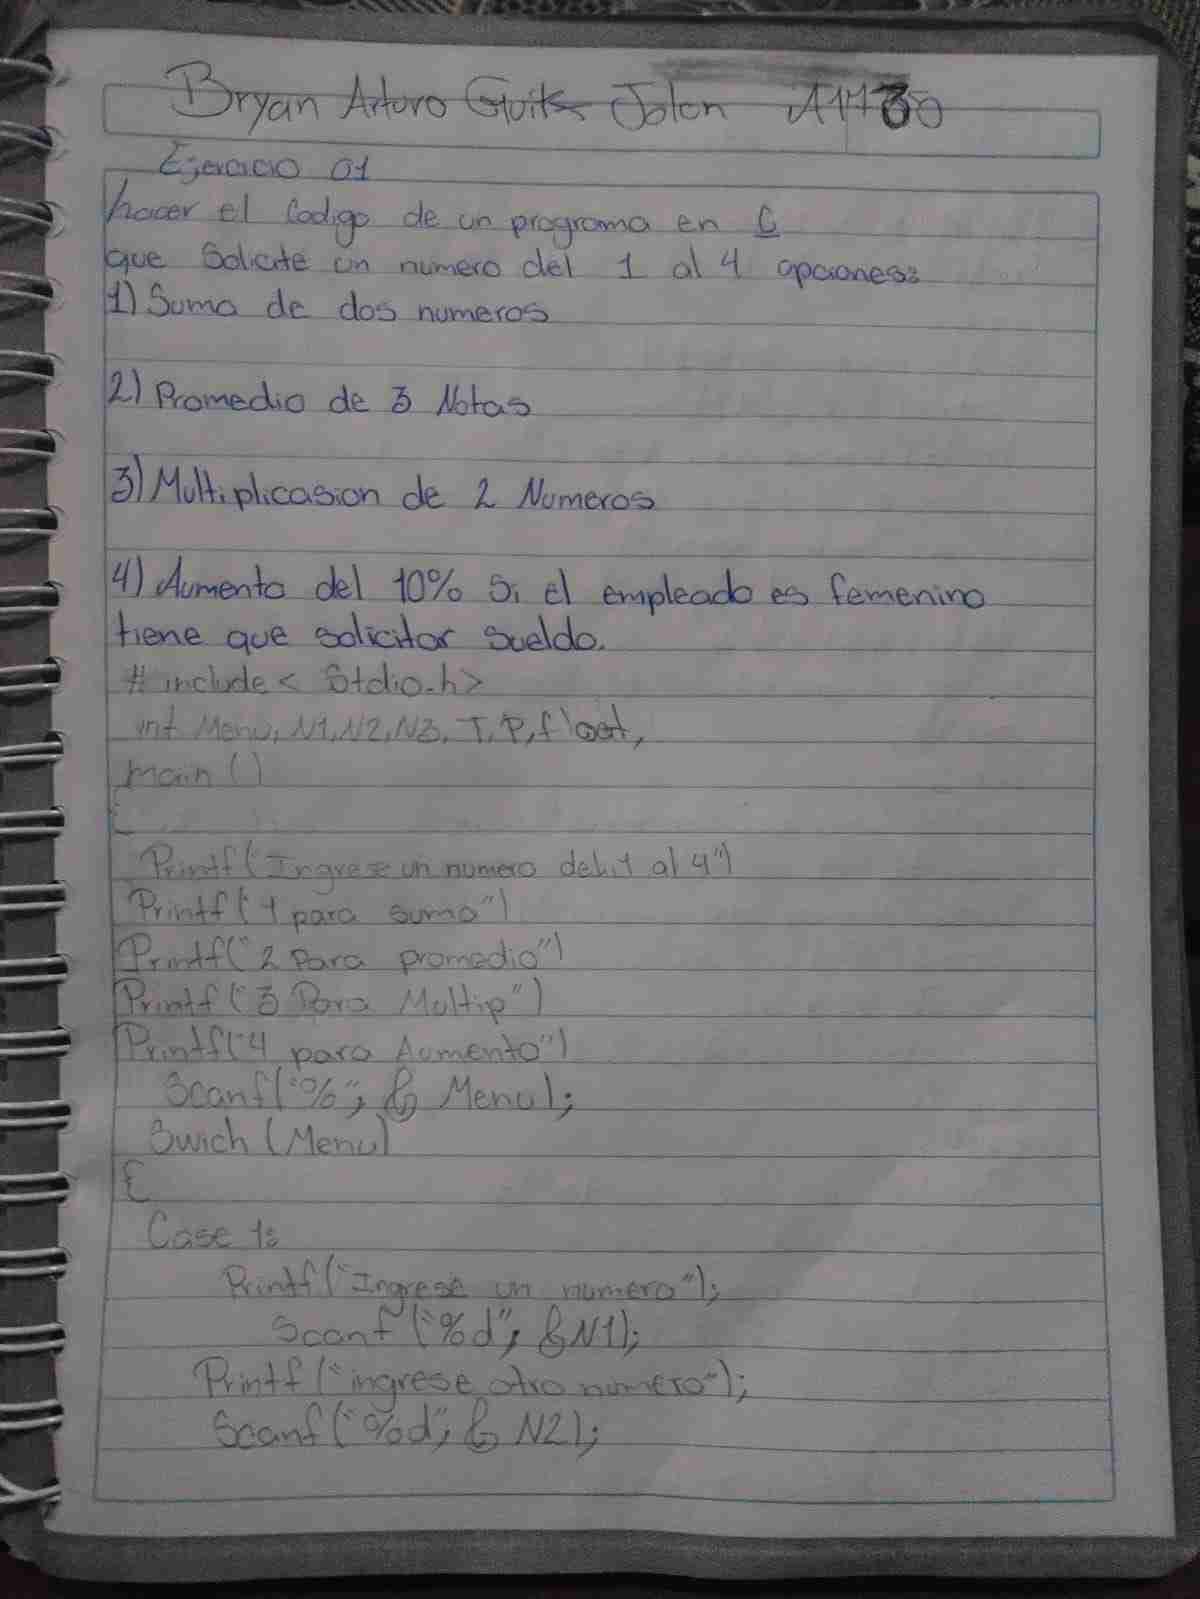 Bryan Arturo Jolon
Ejercicio 01
hacer el Codigo de un programa en C
que Solicite un numero del 1 al 4 opciones:
1) Suma de dos numeros
2) Promedio de 3 Notas
3) Multiplicasion de 2 Numeros
4) Aumento del 10% Si el empleado es femenino
tiene que solicitar sueldo.
# include < Stdio.h>
int Menu, N1, N2, N3, T, P, float,
main ()
{
Printf("Ingrese un numero del 1 al 4")
Printf("1 para suma")
Printf("2 Para promedio")
Printf("3 Para Multip")
Printf("4 para Aumento")
Scanf("%", & Menu);
Swich (Menu)
{
Case 1:
Printf("Ingrese un numero");
Scanf("%d", &N1);
Printf("ingrese otro numero");
Scanf("%d", & N2);